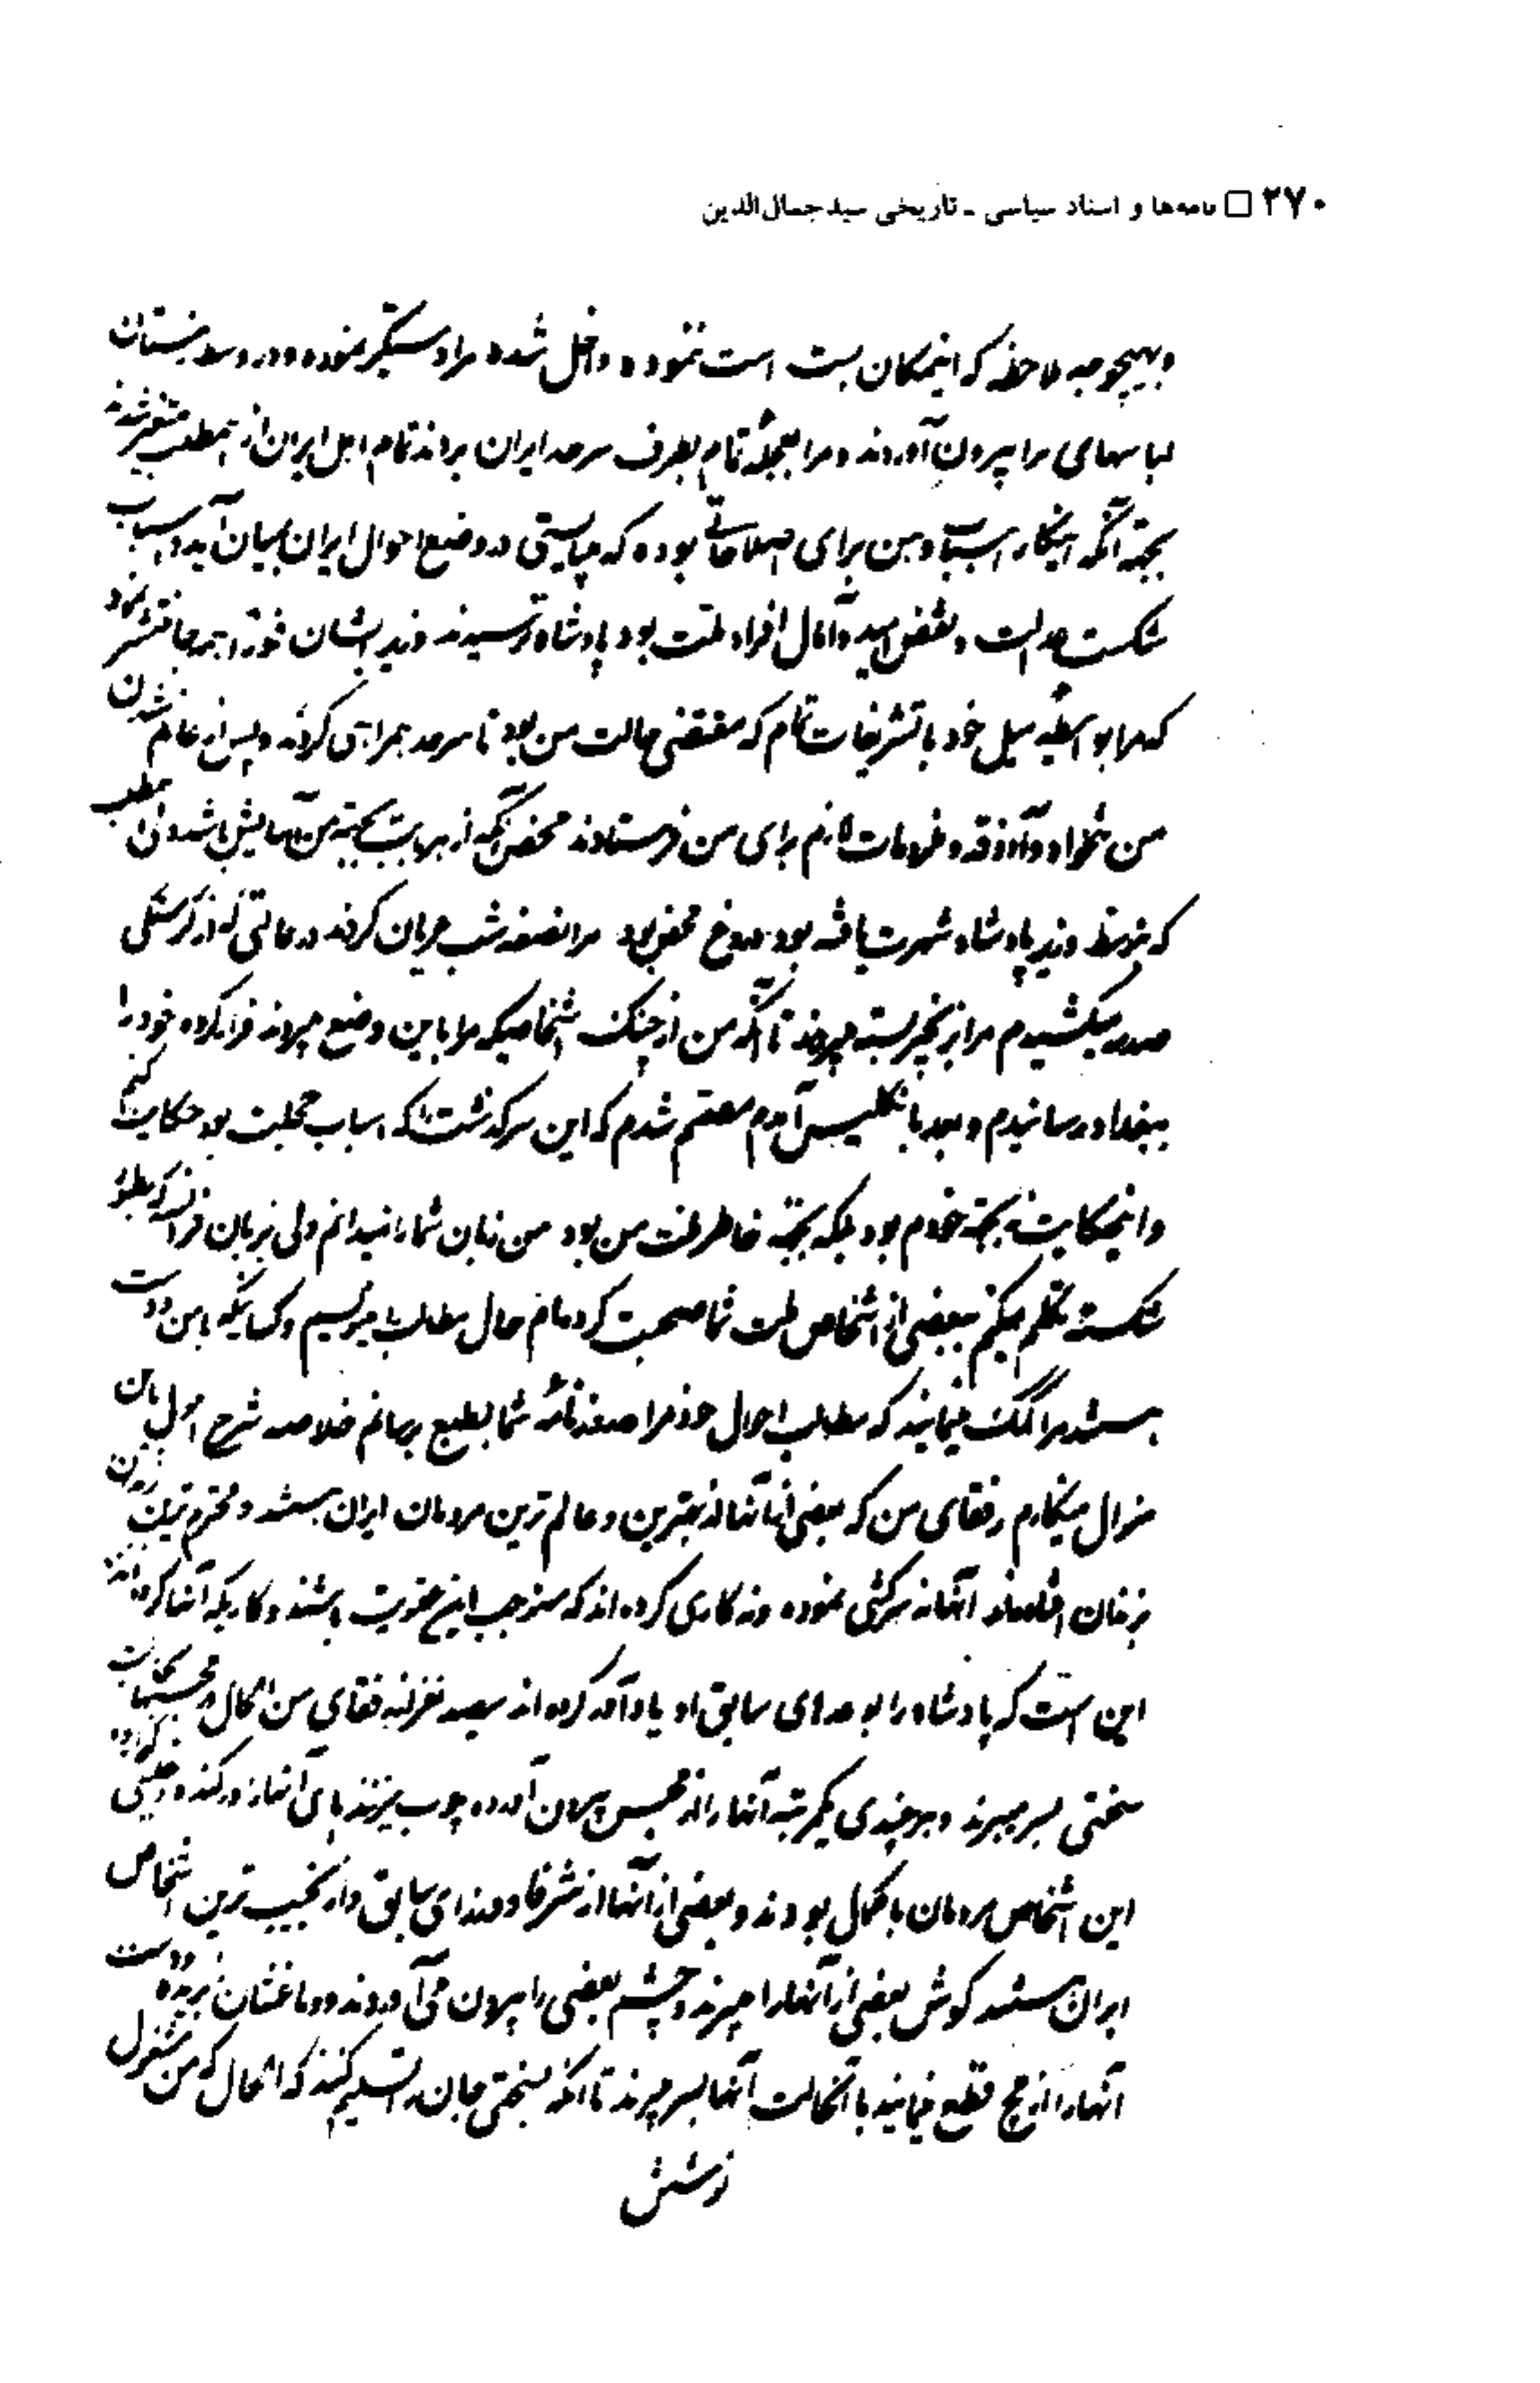 ۲۷۰ □ نامه‌ها و اسناد سیاسی ـ تاریخی سید جمال‌الدین
و بهیچوجه ملاحظه که اینمکان بست است ننموده داخل شده مرا دستگیر نموده و در وسط زمستان
لباسهای مرا بیرون آوردند و مرا بعجله تمام بطرف سرحد ایران براندند تمام اهل ایران از اینمطلب متغیر شدند
بجهة آنکه اینکار اسباب من برای اصلاحاتی بوده که میبایستی در وضع احوال ایران بمیان آید و اسباب
شکست عدالت و نقض امید و آمال افراد ملت بود پادشاه ترسیدند وزیر ایشان فوراً همه جا منتشر نمود
که مرا بواسطه میل خود با تشریفات تمام که مقتضی حالت من بود تا سرحد همراهی کرده‌اند و پس از عازم شدن
من تنخواه و آذوقه و ملزومات لازم برای من فرستادند محض آنکه از هر بابت بجهة من آسایش باشد ولی این مطلب
که توسط وزیر پادشاه شهرت یافته بود دروغ محض بود مرا نصف شب عریان کردند در حالتی که از گرسنگی
صدمه میکشیدم مرا بزنجیر بسته میبردند تا آنکه من از چنگ اشخاصیکه مرا باین وضع میبردند فرار کرده خود را
ببغداد رسانیدم و بعد بانگلیس آمدم مصمم شدم که این سرگذشت را که اسباب خجلت بود حکایت کنم
و اینحکایت نه بجهة خودم بود بلکه بجهة خاطر ملت من بود من زبان شما را نمیدانم ولی بزبان فرانسه که بطور
شکسته تکلم میکنم ببعضی از اشخاص ملت شما صحبت کرده‌ام حال مطلب را مینویسم و کسانیکه با من دوست
هستند مرا کمک مینمایند که مطلب احوال خودم را در روزنامه شما بطبع برسانم خلاصه شرح احوال ایران
منوال مینگارم رفقای من که بعضی از آنها از بهترین و عالم ترین مردمان ایران هستند و محترم ترین
بزندان افتاده‌اند آنها نه سرکشی نموده و نه کاری کرده‌اند که مستوجب این عقوبت باشند و کاریکه آنها کرده‌اند
این است که پادشاه را بوعده‌ای سابق او یادآور کرده‌اند سیصد نفر از رفقای من الحال در محبس
سختی بسر میبرند و هر چندی یکمرتبه آنها را از محبس بیرون آورده چوب میزنند پای آنها را در کند و
این اشخاص مردمان با کمال بودند و بعضی از آنها از شرفا و وزرای سابق و از نجیب ترین اشخاص
ایران هستند گوش بعضی از آنها را میبرند و چشم بعضی را بیرون می‌آورند و دماغشان را بریده دست
آنها را از مچ قطع مینمایند با اینحالت آنها بسر میبرند تا آنکه بسختی جان را تسلیم کنند که الحال که من مشغول
نوشتن